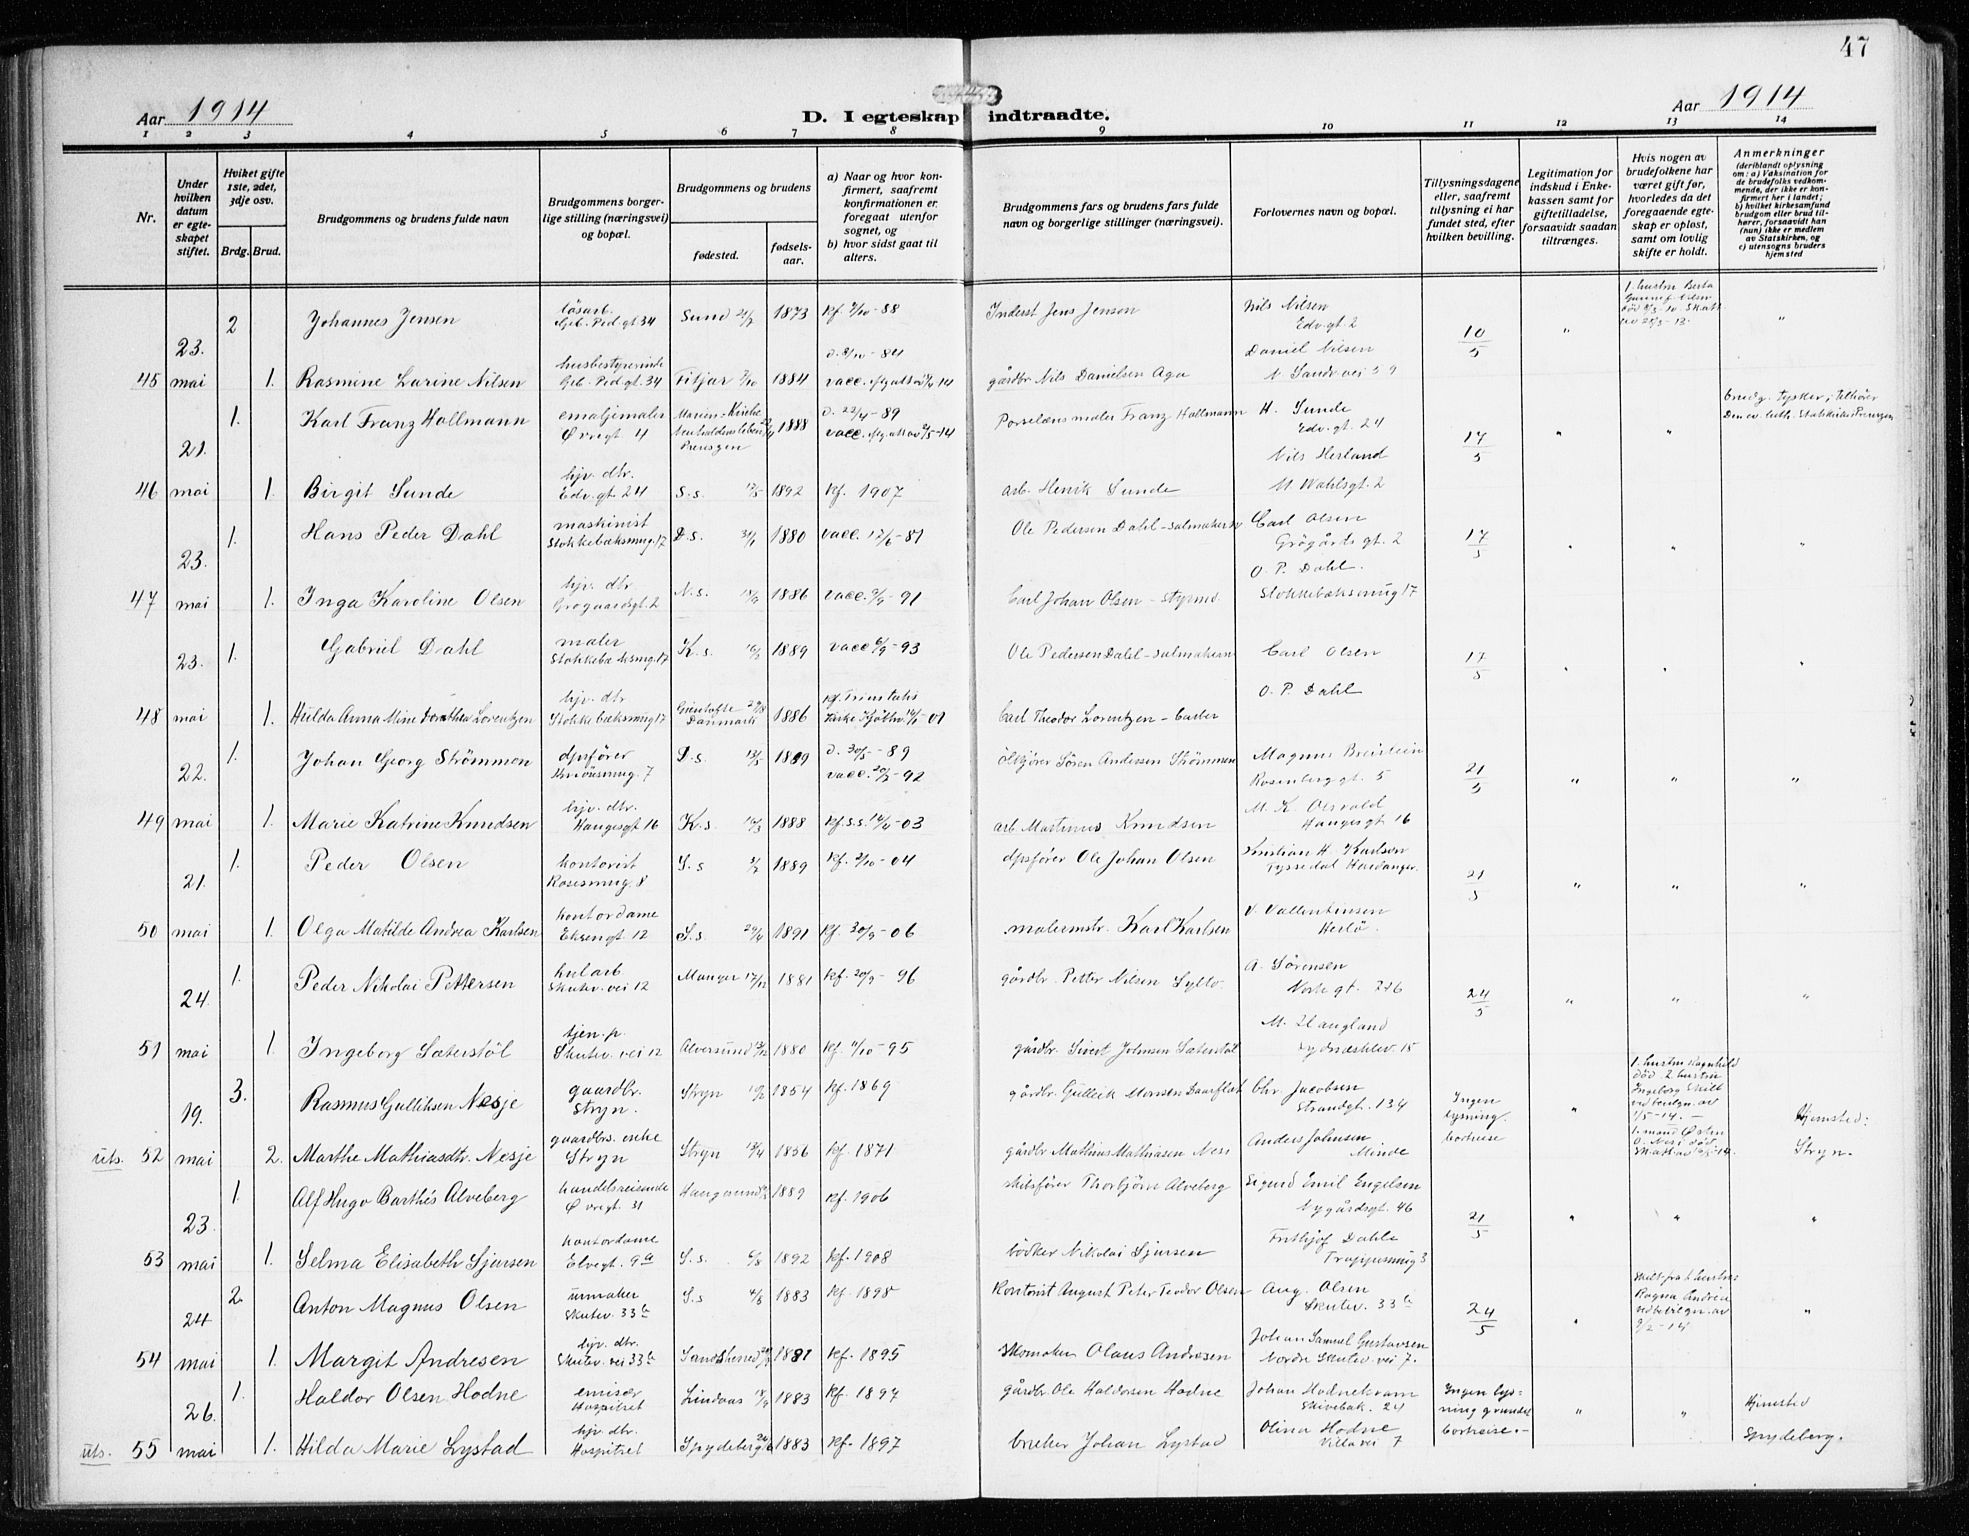 47
Aar 1914
D. I egteskap indtraadte.
Aar 1914
1 2 3 4 5 6 7 8 9 10 11 12 13 14
Nr.
Under hvilken datum er egteskapet stiftet.
Hviket gifte 1ste, 2det, 3dje osv.
Brdg. Brud.
Brudgommens og brudens fulde navn
Brudgommens borgerlige stilling (næringsvei) og bopæl.
Brudgommens og brudens
fødested.
fødselsaar.
a) Naar og hvor konfirmert, saafremt konfirmationen er foregaat utenfor sognet, og
b) hvor sidst gaat til alters.
Brudgommens fars og brudens fars fulde navn og borgerlige stillinger (næringsvei).
Forlovernes navn og bopæl.
Tillysningsdagene eller, saafremt tillysning ei har fundet sted, efter hvilken bevilling.
Legitimation for indskud i Enkekassen samt for giftetilladelse, forsaavidt saadan tiltrænges.
Hvis nogen av brudefolkene har været gift før, hvorledes da det foregaaende egteskap er opløst, samt om lovlig skifte er holdt.
Anmerkninger
(deriblandt oplysning om: a) Vaksination for de brudefolks vedkommende, der ikke er konfirmert her i landet; b) hvilket kirkesamfund brudgom eller brud tilhører, forsaavidt han (hun) ikke er medlem av Statskirken, og c) utensogns bruders hjemsted
23. 2 Johannes Jensen løsarb. Geb. Ped. gt. 34 Sund 1873 Kf. 2/10-88 Inderst Jens Jenson Nils Nilsen Edv. gt. 2 10/5 "
45 mai 1. Rasmine Larine Nilsen husbestyrerinde Geb. Ped gt. 34 Fitjar 1884 gårdbr. Nils Danielsen Aga Daniel Nilsen
21. 1. Karl Franz Hollmann emaljemaler Øvregt 4 1888 d. 22/4-89 Porselænsmaler Franz Hollmann H. Sunde Edv. gt. 24 17/5 " "
46 mai 1. Birgit Sunde hjv. dtr. Edv. gt. 24 S.s. 1892 Kf. 1907 arb. Henrik Sunde Nils Herland M. Wahlsgt. 2
23. 1. Hans Peder Dahl maskinist Stokkebæksmug. 17 D.s. 1880 vacc. 12/6-81 Ole Pedersen Dahl - salmaker Carl Olsen Grøgårds gt. 2 17/5 " " "
47 mai 1. Inga Karoline Olsen hjv. dtr Grogaardsgt. 2 N.s. 1886 vacc. 9/9-91 Carl Johan Olsen - styrmd. O. P. Dahl. Stokkebæksmug 17
23. 1. Gabriel Dahl maler Stokkebæksmug. 17 K.s. 1889 vacc 6/9-93 Ole Pedersen Dahl - salmakerm Carl Olsen 17/5 " " "
48 mai 1. Hulda Anna Mine Dorothea Lorentzen hjv. dtr Stokkebæksmug 17 Danmark 1886 Carl Theodor Lorentzen - barber O. P. Dahl
22. 1. Johan Georg Strömmen dpsfører Knøusmug. 7 D.s. 1889 d. 30/5-89 vacc. 20/5-92 Søren Andersen Strömmen Magnus Breistein Rosenberg gt. 5 21/5 " " "
49 mai 1. Marie Katrine Knudsen hjv. dtr. Haugesgt 16 K.s. 1888 Kf. S.s. 14/4-03 arb. Martinus Knudsen M. K. Olsvold Hauges gt. 16
21. 1. Peder Olsen kontorist Rosesmug. 8 S.s 1889 Kf. 2/10-04 dpsfører Ole Johan Olsen Kristian H. Karlsen Tyssedal Hardanger. 21/5 " " "
50 mai 1. Olga Matilde Andrea Karlsen kontordame Eksengt. 12 S.s. 29/4 1891 Kf. 30/9-06 malermstr. Karl Karlsen V. Vallentinsen Herlø.
24. 1. Peder Nikolai Pettersen kularb Skutev. vei 12 Manger 17/12 1881 Kf. 20/9-96 gårdbr. Petter Nilsen Sylto. A. Sørensen 24/5 " " "
51 mai 1. Ingeborg Sæterstöl tjen. p. Skutev. vei 12 Alversund 1880 Kf. 1/10-95 gårdbr. Sivert Johnsen Sæterstöl M. Haugland
19. 3. Rasmus Gulliksen Nesje gaardbr. Stryn. Stryn 1854 Kf. 1869 gårdbr. Gullik Monsen Chr. Jacobsen Strandgt. 134 Ingen lysning. bortreise " Hjemsted:
uts. 52 mai 2. Marthe Mathiasdtr. Nesje gaardbrs. enke Stryn Stryn 13/4 1856 Kf. 1871 gårdbr Mathias Mathiasen Nesi Anders Johnsen Minde Stryn.
23. 1. Alf Hugo Barthés Alveberg handelsreisende Øvregt. 31 Haugesund 1889 Kf. 1906 Thorbjörn Alveberg Sigurd Emil Engelsen Nygårdsgt. 46 21/5 " " "
53 mai 1. Selma Elisabeth Sjursen kontordame Elvegt. 9a S.s. 6/8 1892 Kf. 1908 bödker Nikolai Sjursen Frithjof Dahle Trappesmug 3
24 2. Anton Magnus Olsen urmaker Skutev. 33b S.s 4/8 1883 Kf. 1898 Kontorist August Peter Teodor Olsen Aug. Olsen Skutev. 33b 24/5 " "
54 mai 1. Margit Andresen hjv. dtr. Skutev. vei 33b 1881 Kf. 1895 Skomaker Olaus Andresen Johan Samuel Gustavsen Nordre Skutev. vei 7.
26. 1. Haldor Olsen Hodne emisær Hospitset Lindaas 1883 Kf. 1897 gårdbr. Ole Haldorsen Hodne Johan Hodnekvam Skivebak. 24 Ingen lysning grundet bortreise.- " " Hjemsted
uts. 55 mai 1. Hilda Marie Lystad hjv dtr. Hospitset Spydeberg 1883 Kf. 1897 Johan Lystad Olina Hodne Villavei 7 Spydeberg.